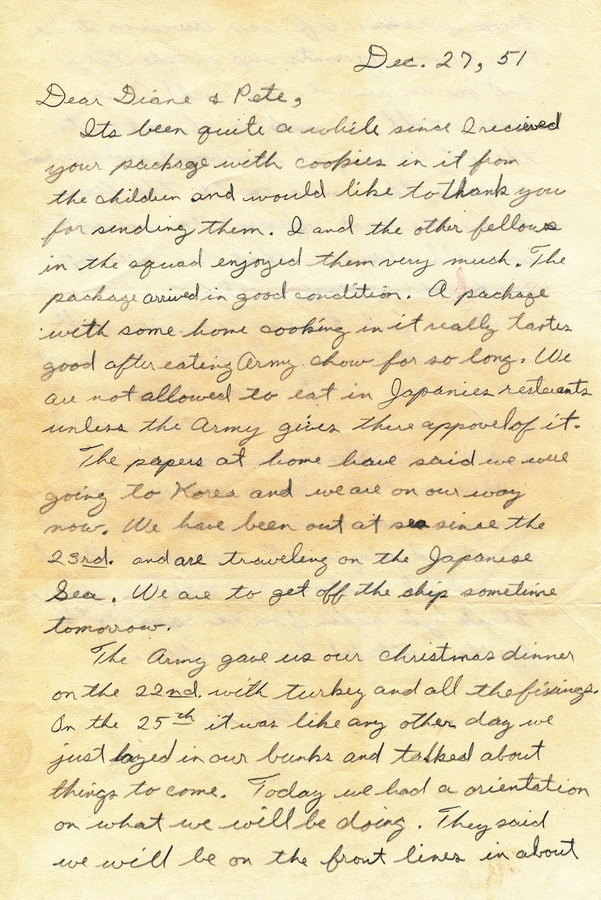 Dec. 27, 51
Dear Diane & Pete,
Its been quite a while since I recieved
your package with cookies in it from
the children and would like to thank you
for sending them. I and the other fellows
in the squad enjoyed them very much. The
package arrived in good condition. A package
with some home cooking in it really tastes
good after eating Army chow for so long. We
are not allowed to eat in Japanies resteants
unless the Army gives there appovel of it.
The papers at home have said we were
going to Korea and we are on our way
now. We have been out at sea since the
23rd. and are traveleng on the Japanese
Sea. We are to get off the ship sometime
tomorrow.
The Army gave us our christmas dinner
on the 22nd. with turkey and all the fixings.
On the 25th it was like any other day we
just lazed in our bunks and talked about
things to come. Today we had a orientation
on what we will be doing. They said
we will be on the front lines in about